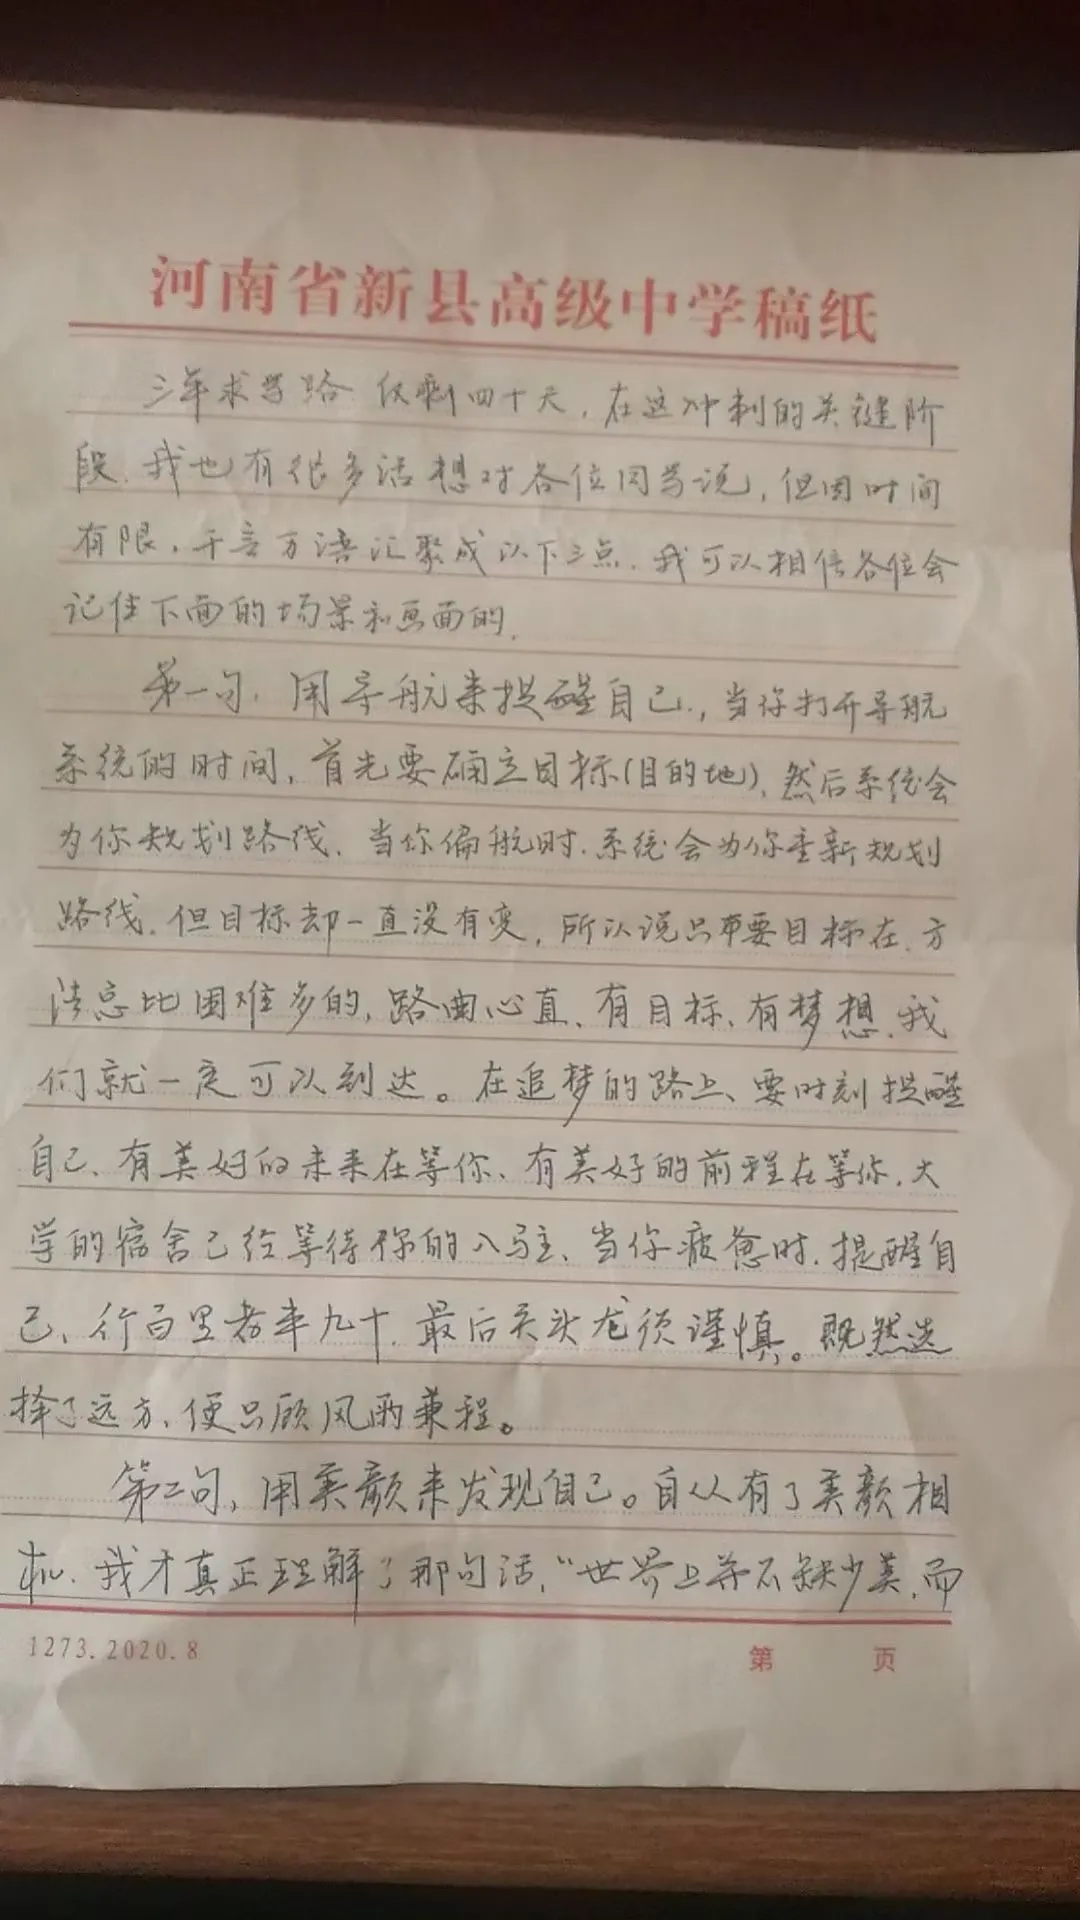 河南省新县高级中学稿纸
三年求学路 仅剩四十天，在这冲刺的关键阶
段，我也有很多话想对各位同学说，但因时间
有限，千言万语汇聚成以下三点，我可以相信各位会
记住下面的场景和画面的。
第一句，用导航来提醒自己，当你打开导航
系统的时间，首先要确立目标(目的地)，然后系统会
为你规划路线，当你偏航时，系统会为你重新规划
路线，但目标却一直没有变，所以说只要目标在，方
法总比困难多的，路曲心直、有目标、有梦想，我
们就一定可以到达。在追梦的路上、要时刻提醒
自己、有美好的未来在等你、有美好的前程在等你，大
学的宿舍已给等待你的入驻、当你疲惫时，提醒自
己、行百里者半九十，最后关头尤须谨慎。既然选
择了远方、便只顾风雨兼程。
第二句，用美颜来发现自己。自从有了美颜相
机，我才真正理解了那句话，“世界上并不缺少美，而
1273.2020.8
第 页